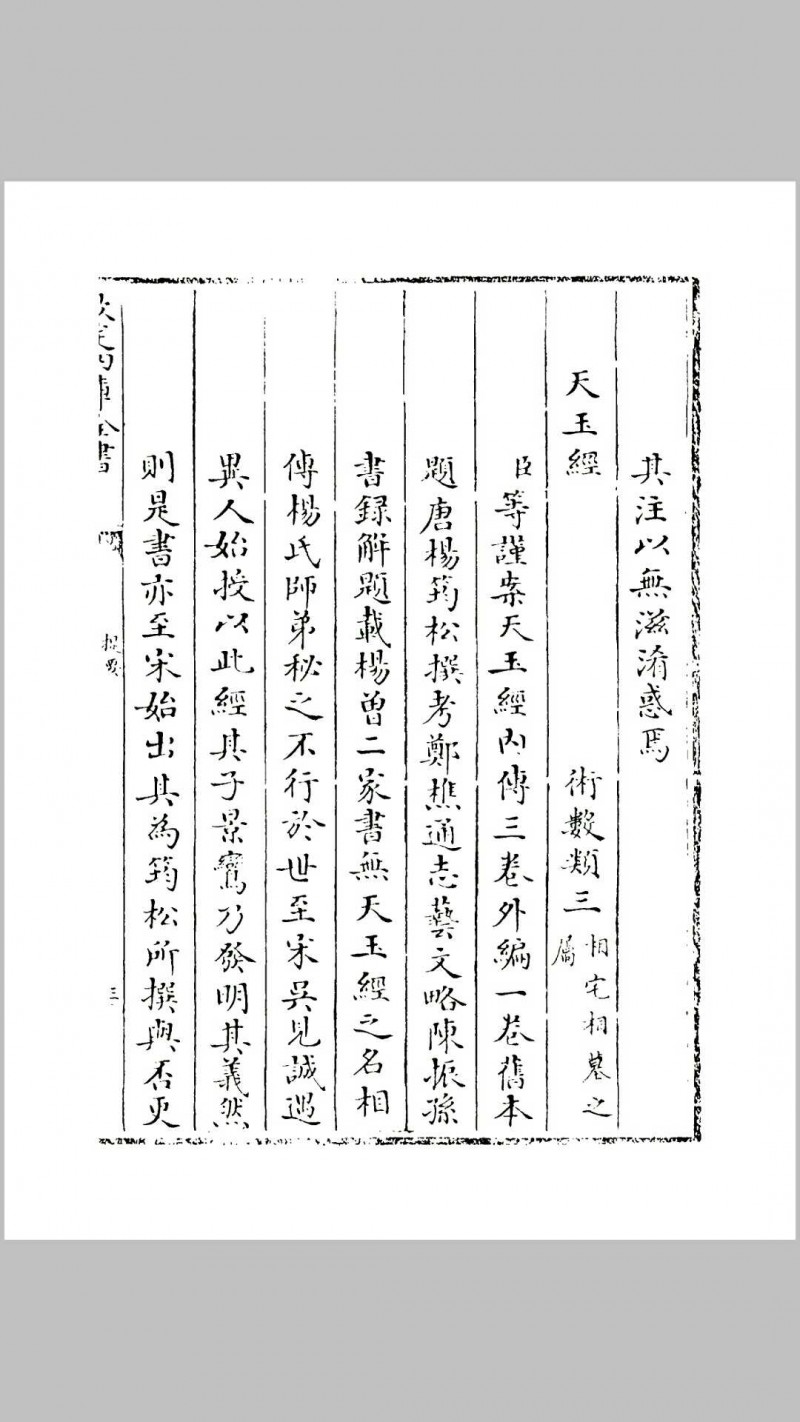 其注以無滋淆惑焉
天玉經　術數類三 相宅相墓之屬
臣等謹案天玉經內傳三卷外編一卷舊本
題唐楊筠松撰考鄭樵通志藝文略陳振孫
書録解題載楊曾二家書無天玉經之名相
傳楊氏師弟秘之不行於世至宋吳見誠遇
異人始授以此經其子景鸞乃發明其義然
則是書亦至宋始出其為筠松所撰與否更
欽定四庫全書
提要
三